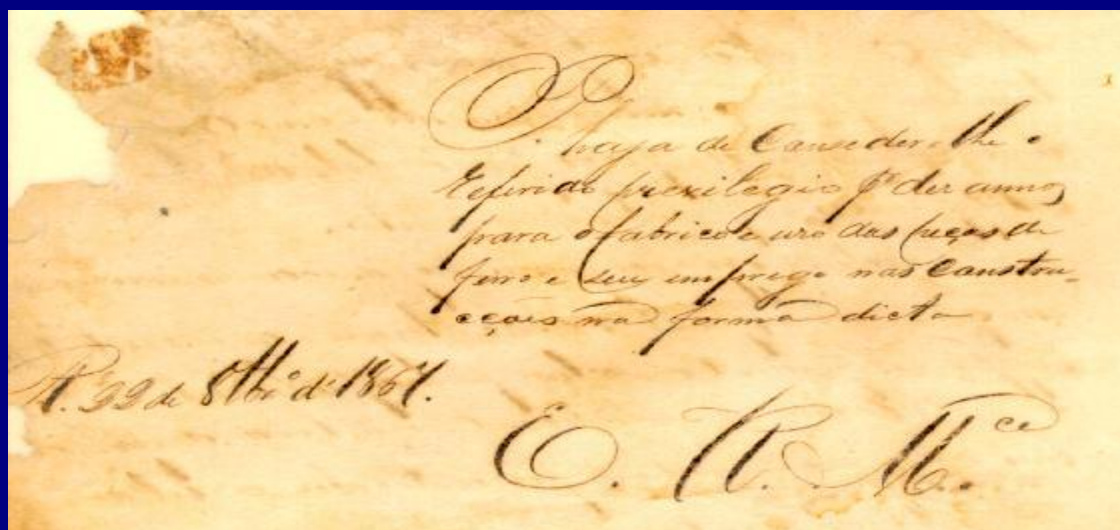 P. haja de Conseder-lhe o
referido previlegio p.r des annos
para o fabrico e uso das peças de
ferro e seu emprego nas Constru-
cções na forma dicta
R. 22 de 8bro de 1867.
E. R. M.ce